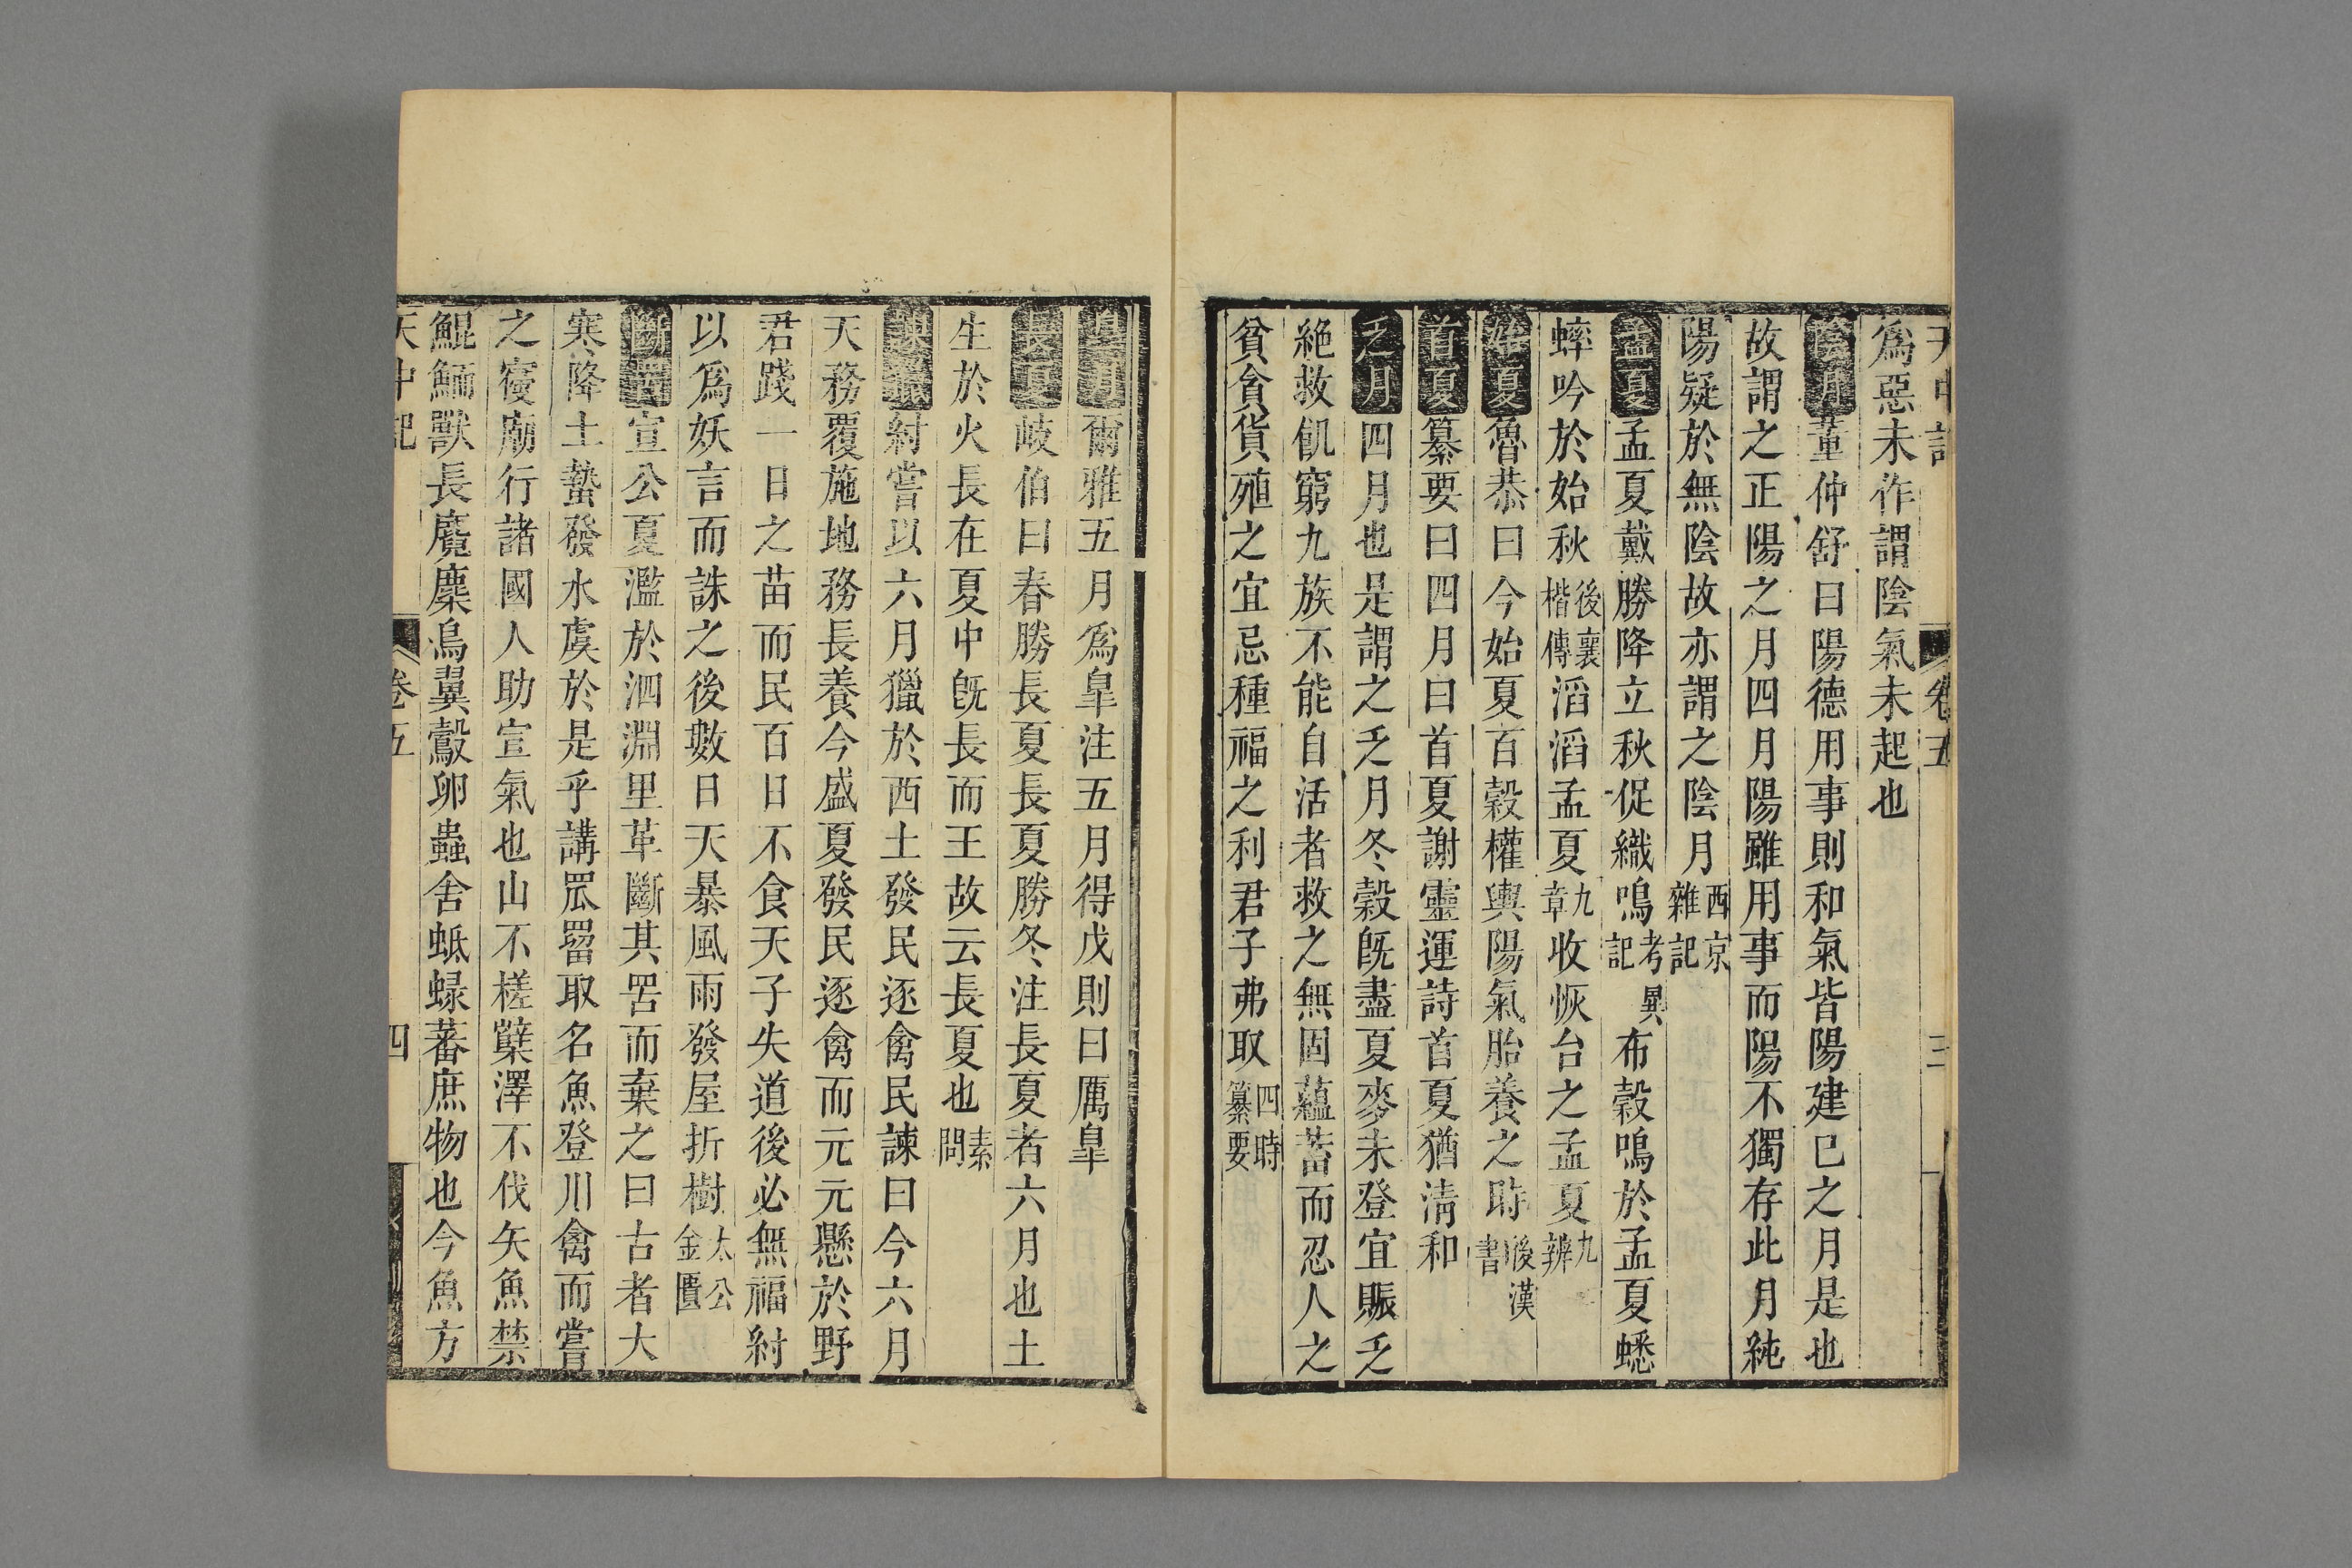 天中記 卷五 三
為惡未作謂陰氣未起也
陰月董仲舒曰陽德用事則和氣皆陽建巳之月是也
故謂之正陽之月四月陽雖用事而陽不獨存此月純
陽疑於無陰故亦謂之陰月西京雜記
孟夏孟夏戴勝降立秋促織鳴考異記布穀鳴於孟夏蟋
蟀吟於始秋後襄楷傳滔滔孟夏九章收恢台之孟夏九辨
始夏魯恭曰今始夏百穀權輿陽氣胎養之時後漢書
首夏纂要曰四月曰首夏謝靈運詩首夏猶清和
乏月四月也是謂之乏月冬穀既盡夏麥未登宜賑乏
絶救飢窮九族不能自活者救之無固蘊蓄而忍人之
貧貪貨殖之宜忌種福之利君子弗取四時纂要
皐月爾雅五月為皐注五月得戊則曰厲皐
長夏岐伯曰春勝長夏長夏勝冬注長夏者六月也土
生於火長在夏中既長而王故云長夏也素問
諫獵紂嘗以六月獵於西土發民逐禽民諫曰今六月
天務覆施地務長養今盛夏發民逐禽而元元懸於野
君踐一日之苗而民百日不食天子失道後必無福紂
以為妖言而誅之後數日天暴風雨發屋折樹太公金匱
斷罟宣公夏濫於泗淵里革斷其罟而棄之曰古者大
寒降土蟄發水虞於是乎講罛罶取名魚登川禽而嘗
之寢廟行諸國人助宣氣也山不槎櫱澤不伐夭魚禁
鯤鮞獸長麑麌鳥翼鷇卵蟲舍蚳蝝蕃庶物也今魚方
天中記 卷五 四